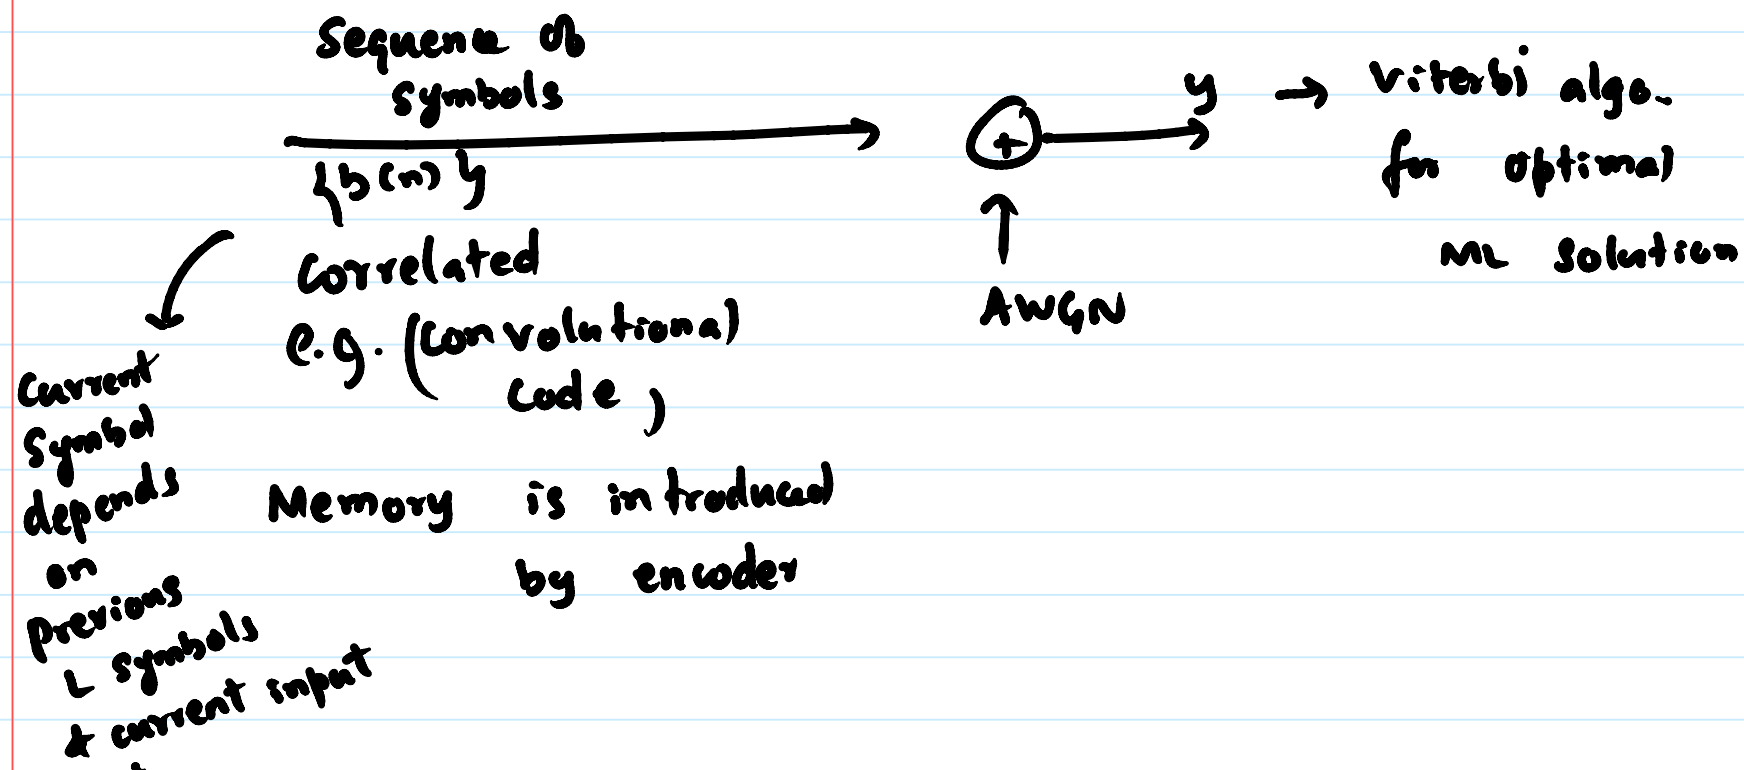 Sequence of
symbols
{b(n)}
Correlated
e.g. (Convolutional
Code)
Memory is introduced
by encoder
Current
Symbol
depends
on
previous
L symbols
& current input
+
AWGN
y → Viterbi algo.
for optimal
ML solution